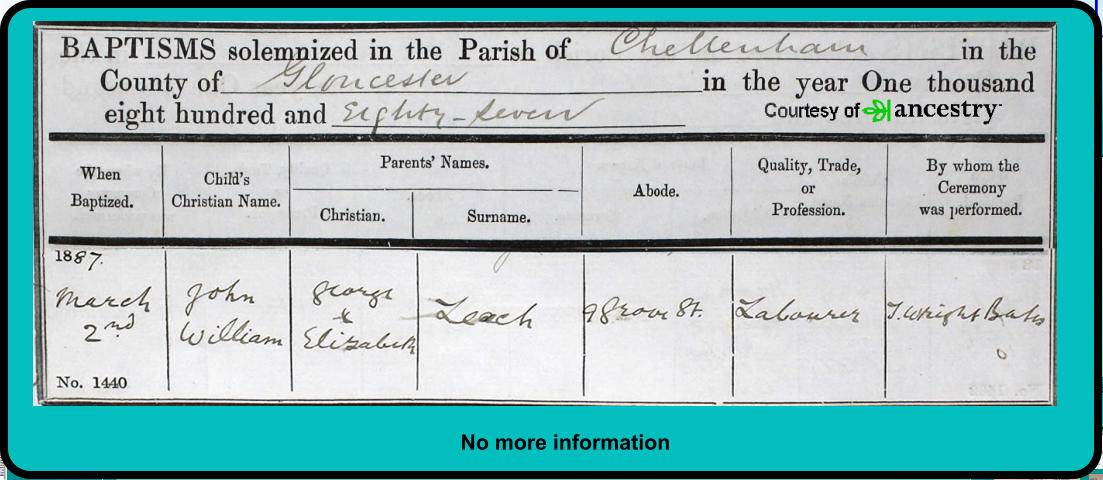 BAPTISMS solemnized in the Parish of Cheltenham in the
County of Gloucester in the year One thousand
eight hundred and Eighty-seven
Courtesy of ancestry
When Baptized.
Child's Christian Name.
Parents' Names.
Christian.
Surname.
Abode.
Quality, Trade, or Profession.
By whom the Ceremony was performed.
1887.
March
2nd
No. 1440
John
William
George
&
Elizabeth
Leach
9 Grove St.
Labourer
J. Wright
No more information